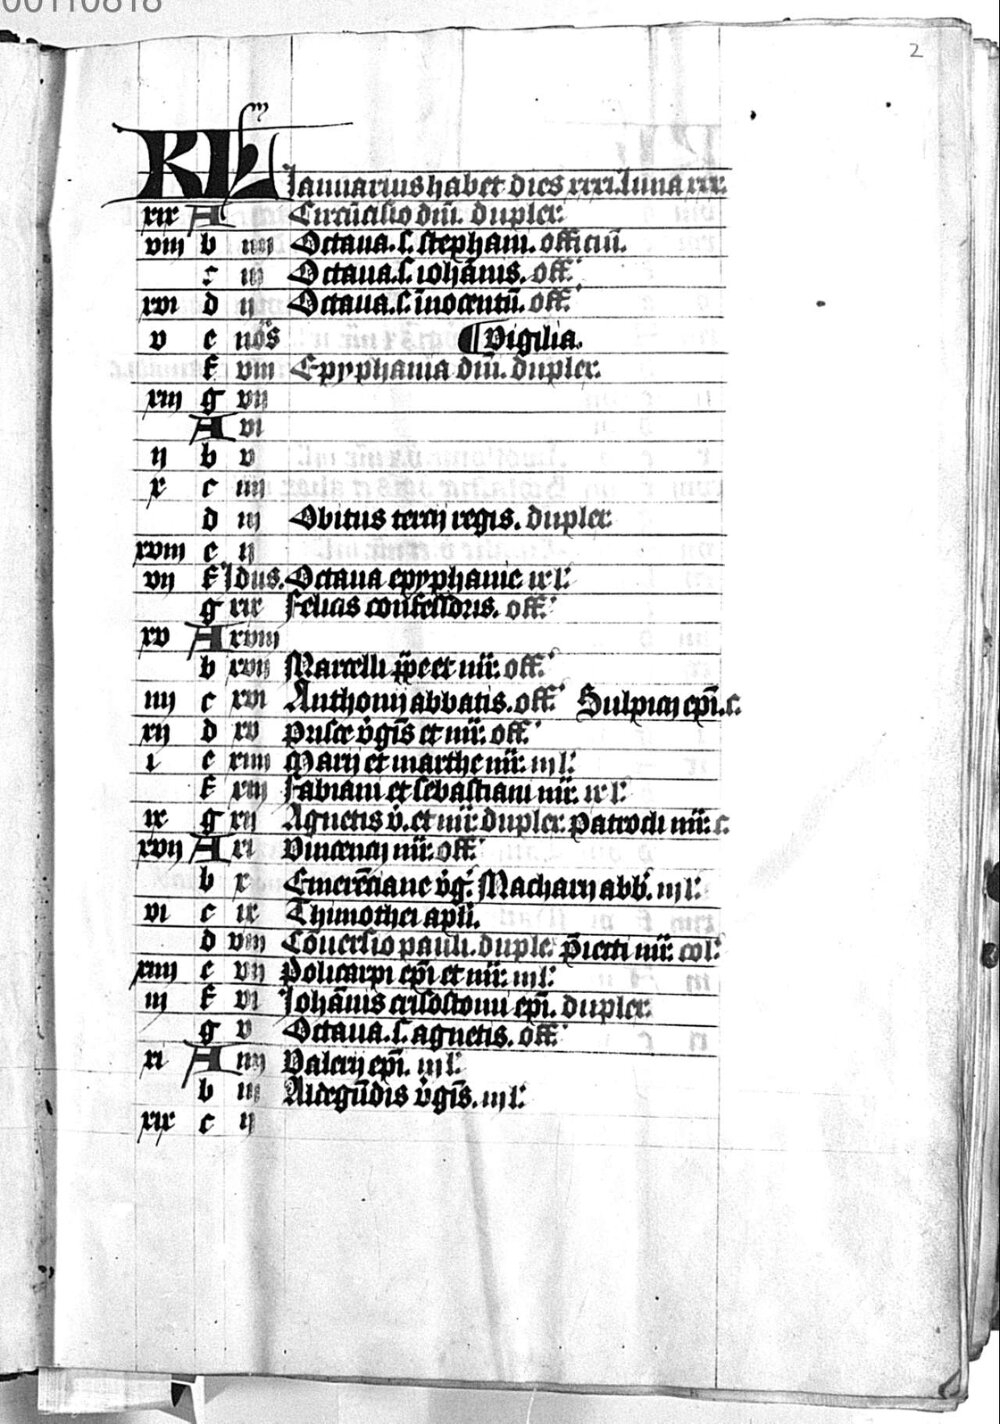 00110818
2
KL
Januarius habet dies xxxi. luna xxx.
xix A Circūcisio dn̄i. duplex
viij b iiij Octaua. S. stephani. officiū.
c iij Octaua. S. iohānis. off.
xvi d ij Octaua. S. īnocentū. off.
v e nōs ¶ Vigilia.
f viij Epyphania dn̄i. duplex.
xiij g vij
A vi
ij b v
x c iiij
d iij Obitus tercij regis. duplex
xviij e ij
vij f Idus. Octaua epyphanie ix l:
g xix Felicis confessoris. off:
xv A xviij
b xvij Marcelli pp̄e et mr̄: off:
iiij c xvi Anthonij abbatis. off: Sulpicij ep̄i. c.
xij d xv Prisce v̄gīs et mr̄: off:
i e xiiij Marij et marthe mr̄: iij l:
f xiij Fabiani et sebastiani mr̄: ix l:
ix g xij Agnetis v̄. et mr̄: duplex Patrocli mr̄: c.
xvij A xi Vincencij mr̄: off:
b x Emerēciane v̄g: Macharij abb. iij l:
vi c ix Thimothei apl̄i.
d viij Cōuersio pauli. duple: p̄iecti mr̄: col:
xiiij e vij Policarpi ep̄i et mr̄: iij l:
iij f vi Johānis crisostomi ep̄i. duplex
g v Octaua. S. agnetis. off:
xi A iiij Valerij ep̄i. iij l:
b iij Aldegūdis v̄gīs. iij l:
xix c ij